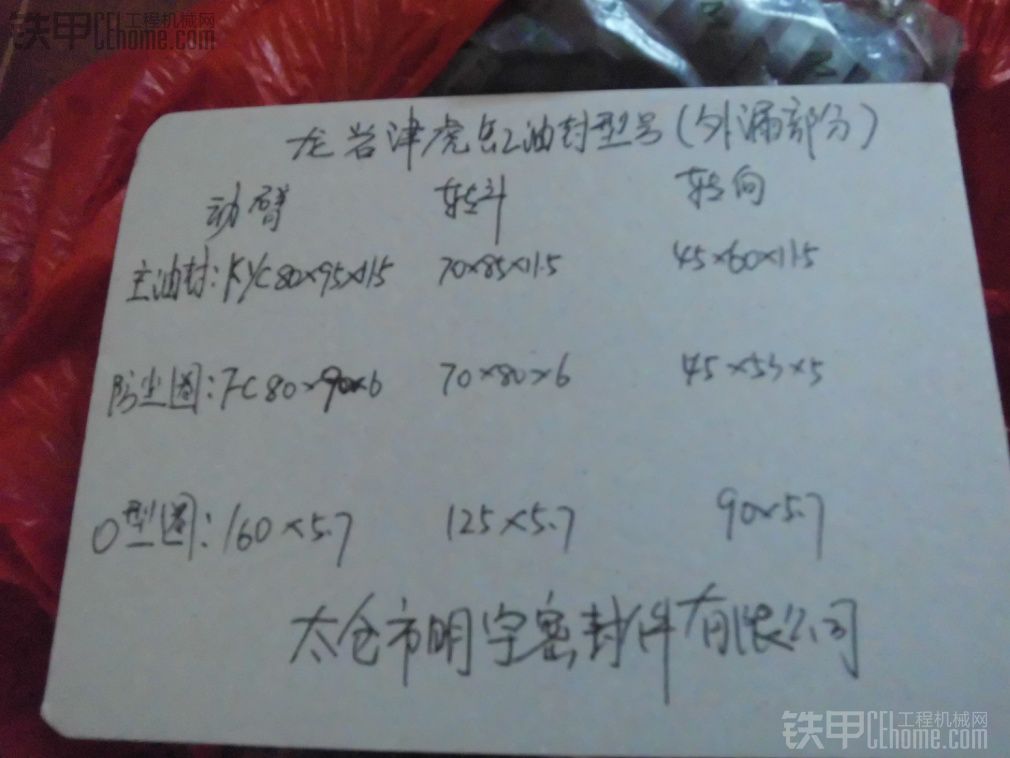 铁甲 CEhome.com 工程机械网
龙岩津虎缸油封型号(外漏部分)
动臂 转斗 转向
主油封:KYC80×95×11.5 70×85×11.5 45×60×11.5
防尘圈:FC80×90×6 70×80×6 45×53×5
O型圈:160×5.7 125×5.7 90×5.7
太仓市明宇密封件有限公司
铁甲 CEhome.com 工程机械网